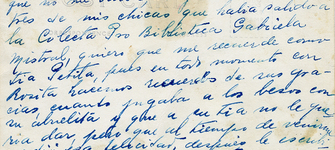 que no me
tres de mis chicas que había salido a
la Colecta Pro Biblioteca Gabriela
Mistral, quiero que me recuerde como
tía Pepita, pues en todo momento con
Rosita hacemos recuerdos de sus gra-
cias, cuando jugaba a los besos con
su abuelita y que a su tía no le que
ría dar, pero que al tiempo de venirse
felicidad, después le escribí